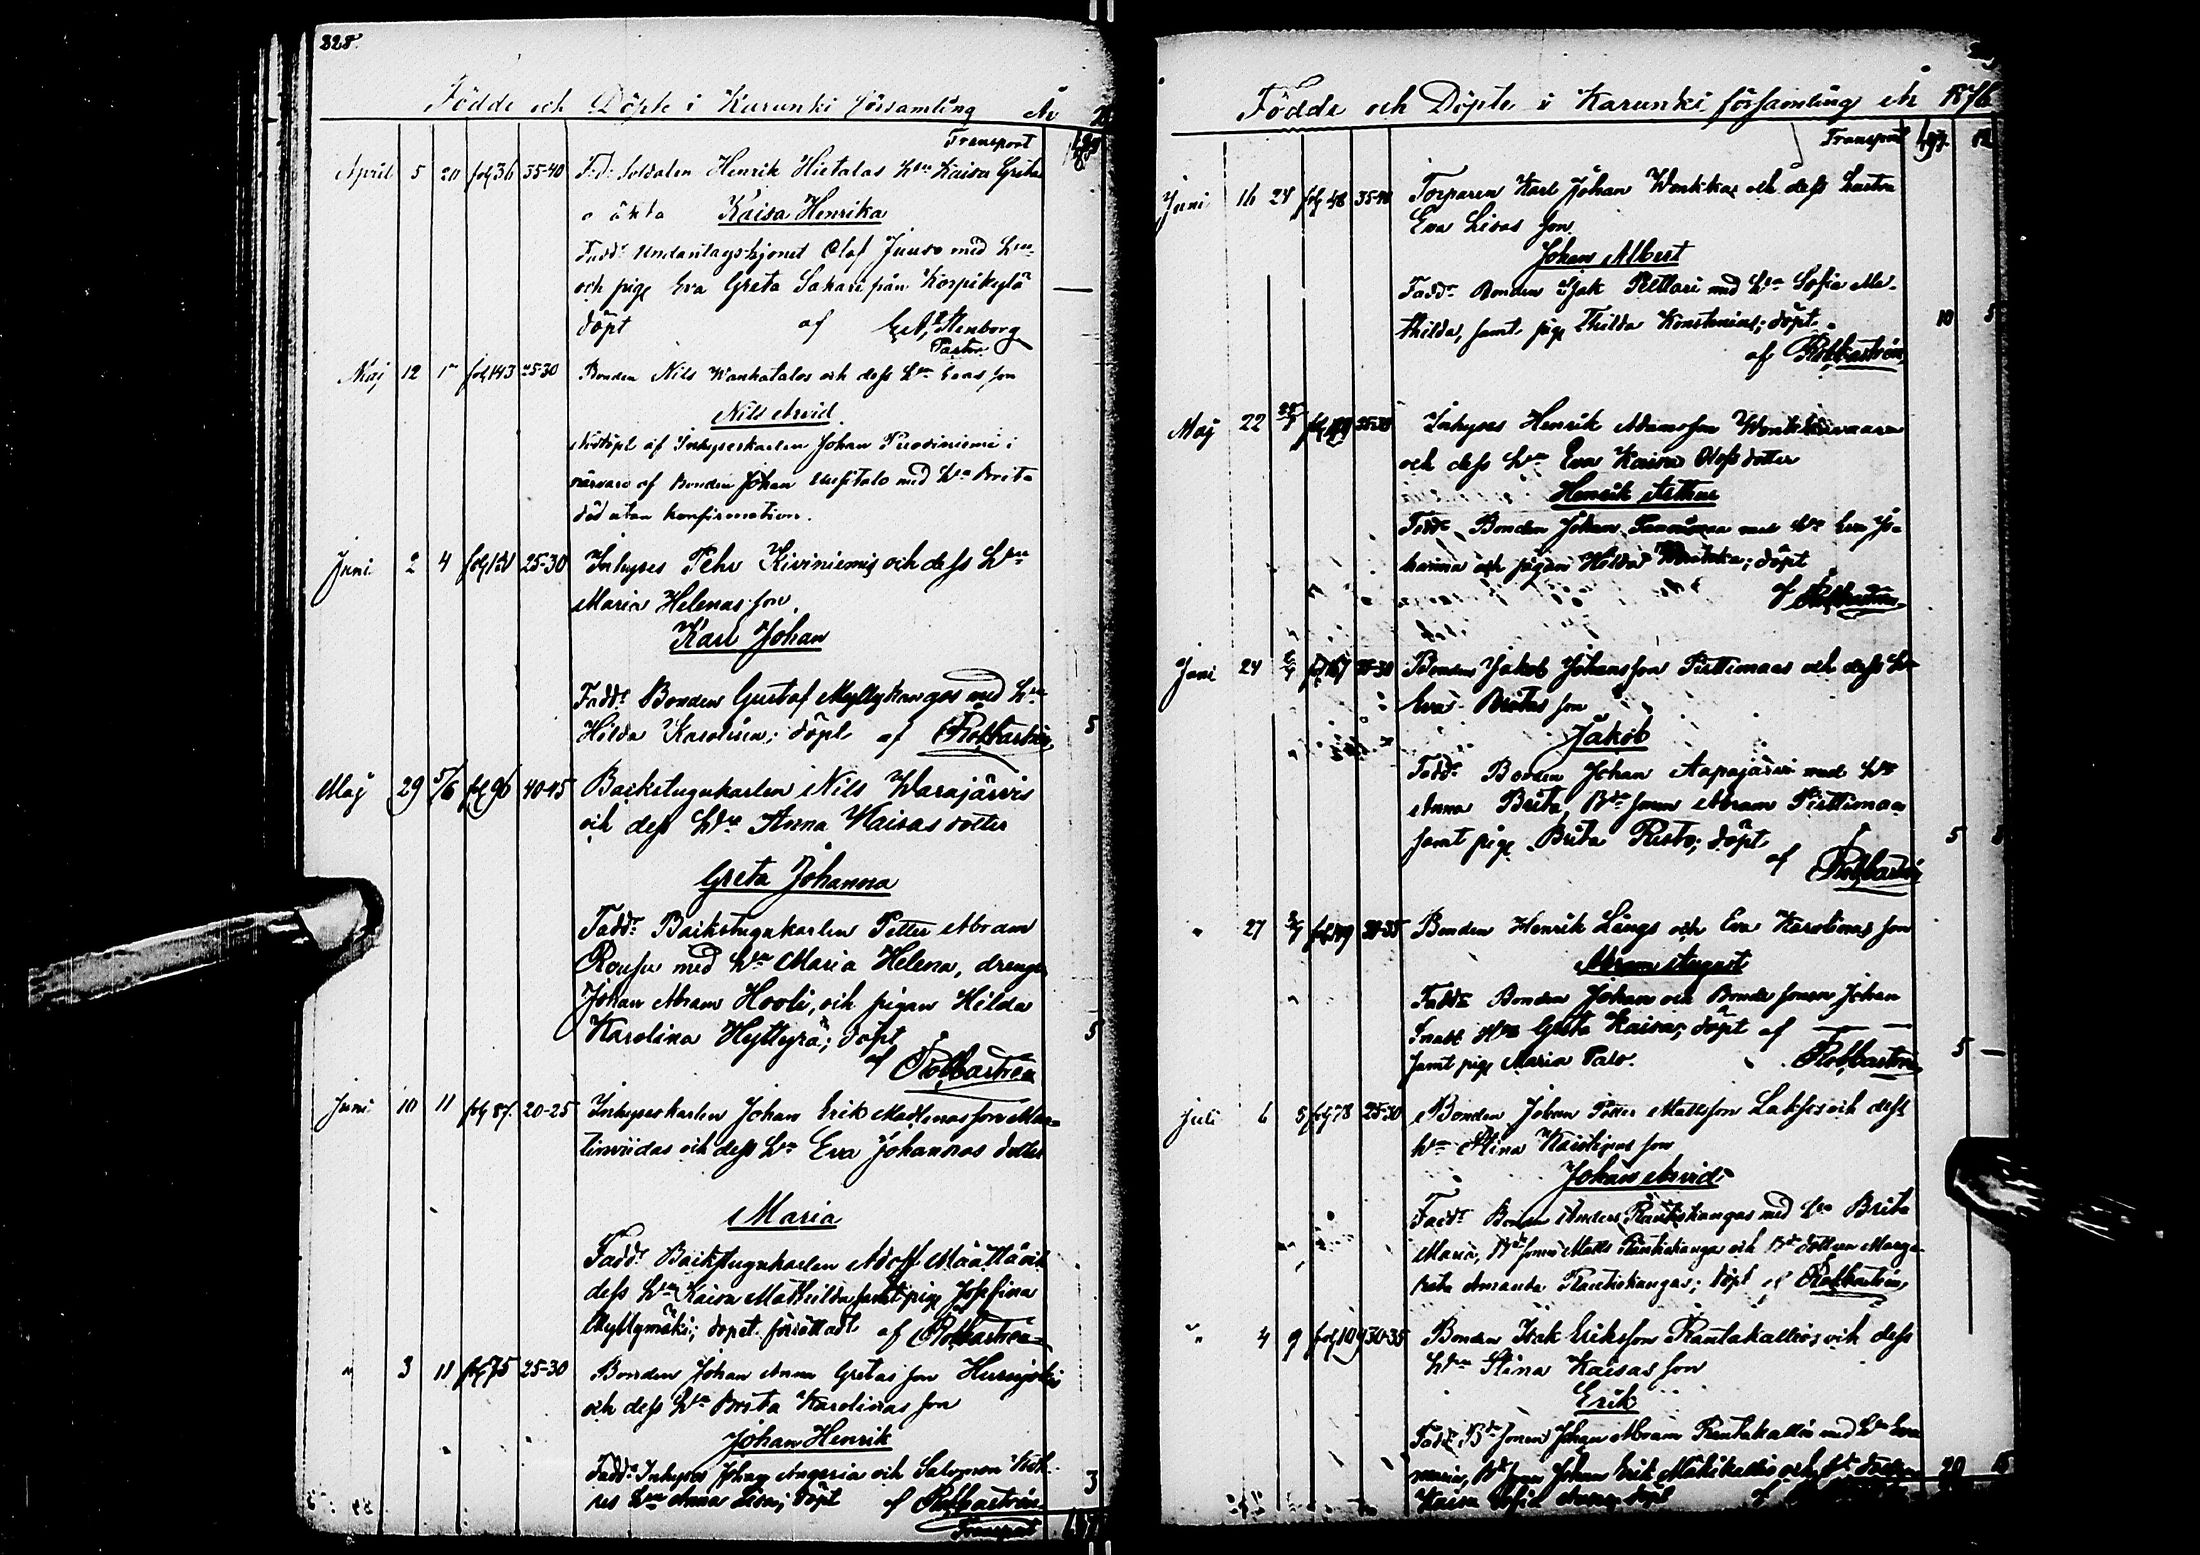 328.
Födde och Döpte i Karunki församling År
Transport
April 5 20 fol 36 35-40 F.d. Soldaten Henrik Hietalas h:u Kaisa Greta
o äkta Kaisa Henrika
Fadd: Undantagshjonet Olof Juuso med h:u
och pig. Eva Greta Sakari från Korpikylä
döpt af Stenborg
Pastor
Maj 12 fol 143 25-30 Bonden Nils Wankatalos och dess h:u Evas son
Nils Arvid
Nöddöpt af Inhyseskarlen Johan Puoviniemi i
närvaro af Bonden Johan Uusitalo med h:u Brita
död utan konfirmation.
Juni 2 4 25-30 Inhyses Pehr Kiviniemis och dess h:u
Maria Helenas son
Karl Johan
Fadd: Bonden Gustaf Myllykangas med h:u
Hilda Karolina; döpt af Robbarström 5
Maj 29 5/6 fol 96 40-45 Backstugukarlen Nils Warajärvis
och dess h:u Anna Kaisas dotter
Greta Johanna
Fadd: Backstugukarlen Petter Abram
Roufu med h:u Maria Helena, drengen
Johan Abram Hooli, och pigan Hilda
Karolina Hyttyrä; döpt 5
af Robbarström
Juni 10 11 fol 87 20-25 Inhyseskarlen Johan Erik Madlenas son Mar-
tinviidas och dess h:u Eva Johannas dotter
Maria
Fadd: Backstugukarlen Adolf Määttä och
dess h:u Kaisa Mathilda samt pig. Josefina
Myllymäki; dopet förrättadt af Robbarström
" 3 11 fol 75 25-30 Bonden Johan Anna Gretas son
och dess h:u Brita Karolinas son
Johan Henrik
Fadd: Inhyses Johan Angeria och Salomon
h:u Anna Lisa; döpt af Robbarström 3
Transport
Födde och Döpte i Karunki församling År 1876
Transport
Juni 16 24 fol 48 35-40 Torparen Karl Johan Wonkkas och dess hustru
Eva Lisas son
Johan Albert
Fadd: Bonden Isak Pelttari med h:u Sofia Ma-
thilda, samt pig. Thilda Konstenius; döpt 10 5
af Robbarström
Maj 22 Inhyses Henrik Adamsson
och dess h:u Eva Kaisas Olofsdotter
Henrik Arthur
Fadd: Bonden Johan med h:u Eva Jo-
hanna och pigan Hilda Wonkka; döpt
af Robbarström
Juni 24 Bonden Jakob Johansson Pirttimaas och dess h:u
Eva Britas son
Jakob
Fadd: Bonden Johan Aapajärvi med h:u
Anna Brita, B:de sonen Abram Pirttimaa
samt pig. Brita Risto; döpt 5
af Robbarström
" 27 30-35 Bonden Henrik Längs och Eva Karolinas son
Abram August
Fadd: Bonden Johan och Bonde sonen Johan
h:u Greta Kaisa; döpt af
samt pig. Maria Palo. Robbarström 5
Juli 6 8 fol 78 25-30 Bonden Johan Petter Mattsson Laksos och dess
h:u Stina Kaisas son
Johan Arvid
Fadd: Bonden Anders Rautiokangas med h:u Brita
Maria, B:de sonen Matts Rautiokangas och B:de dottern Marga-
reta Amanda Rautiokangas; döpt af Robbarström
" 4 9 30-35 Bonden Isak Eriksson Rantakallios och dess
h:u Stina Kaisas son
Erik
Fadd: B:de sonen Johan Abram Rantakallio med h:u Eva
Maria, B:de sonen Johan Erik Mäkikallio och B:de dottern 20
Kaisa Sofia döpt af